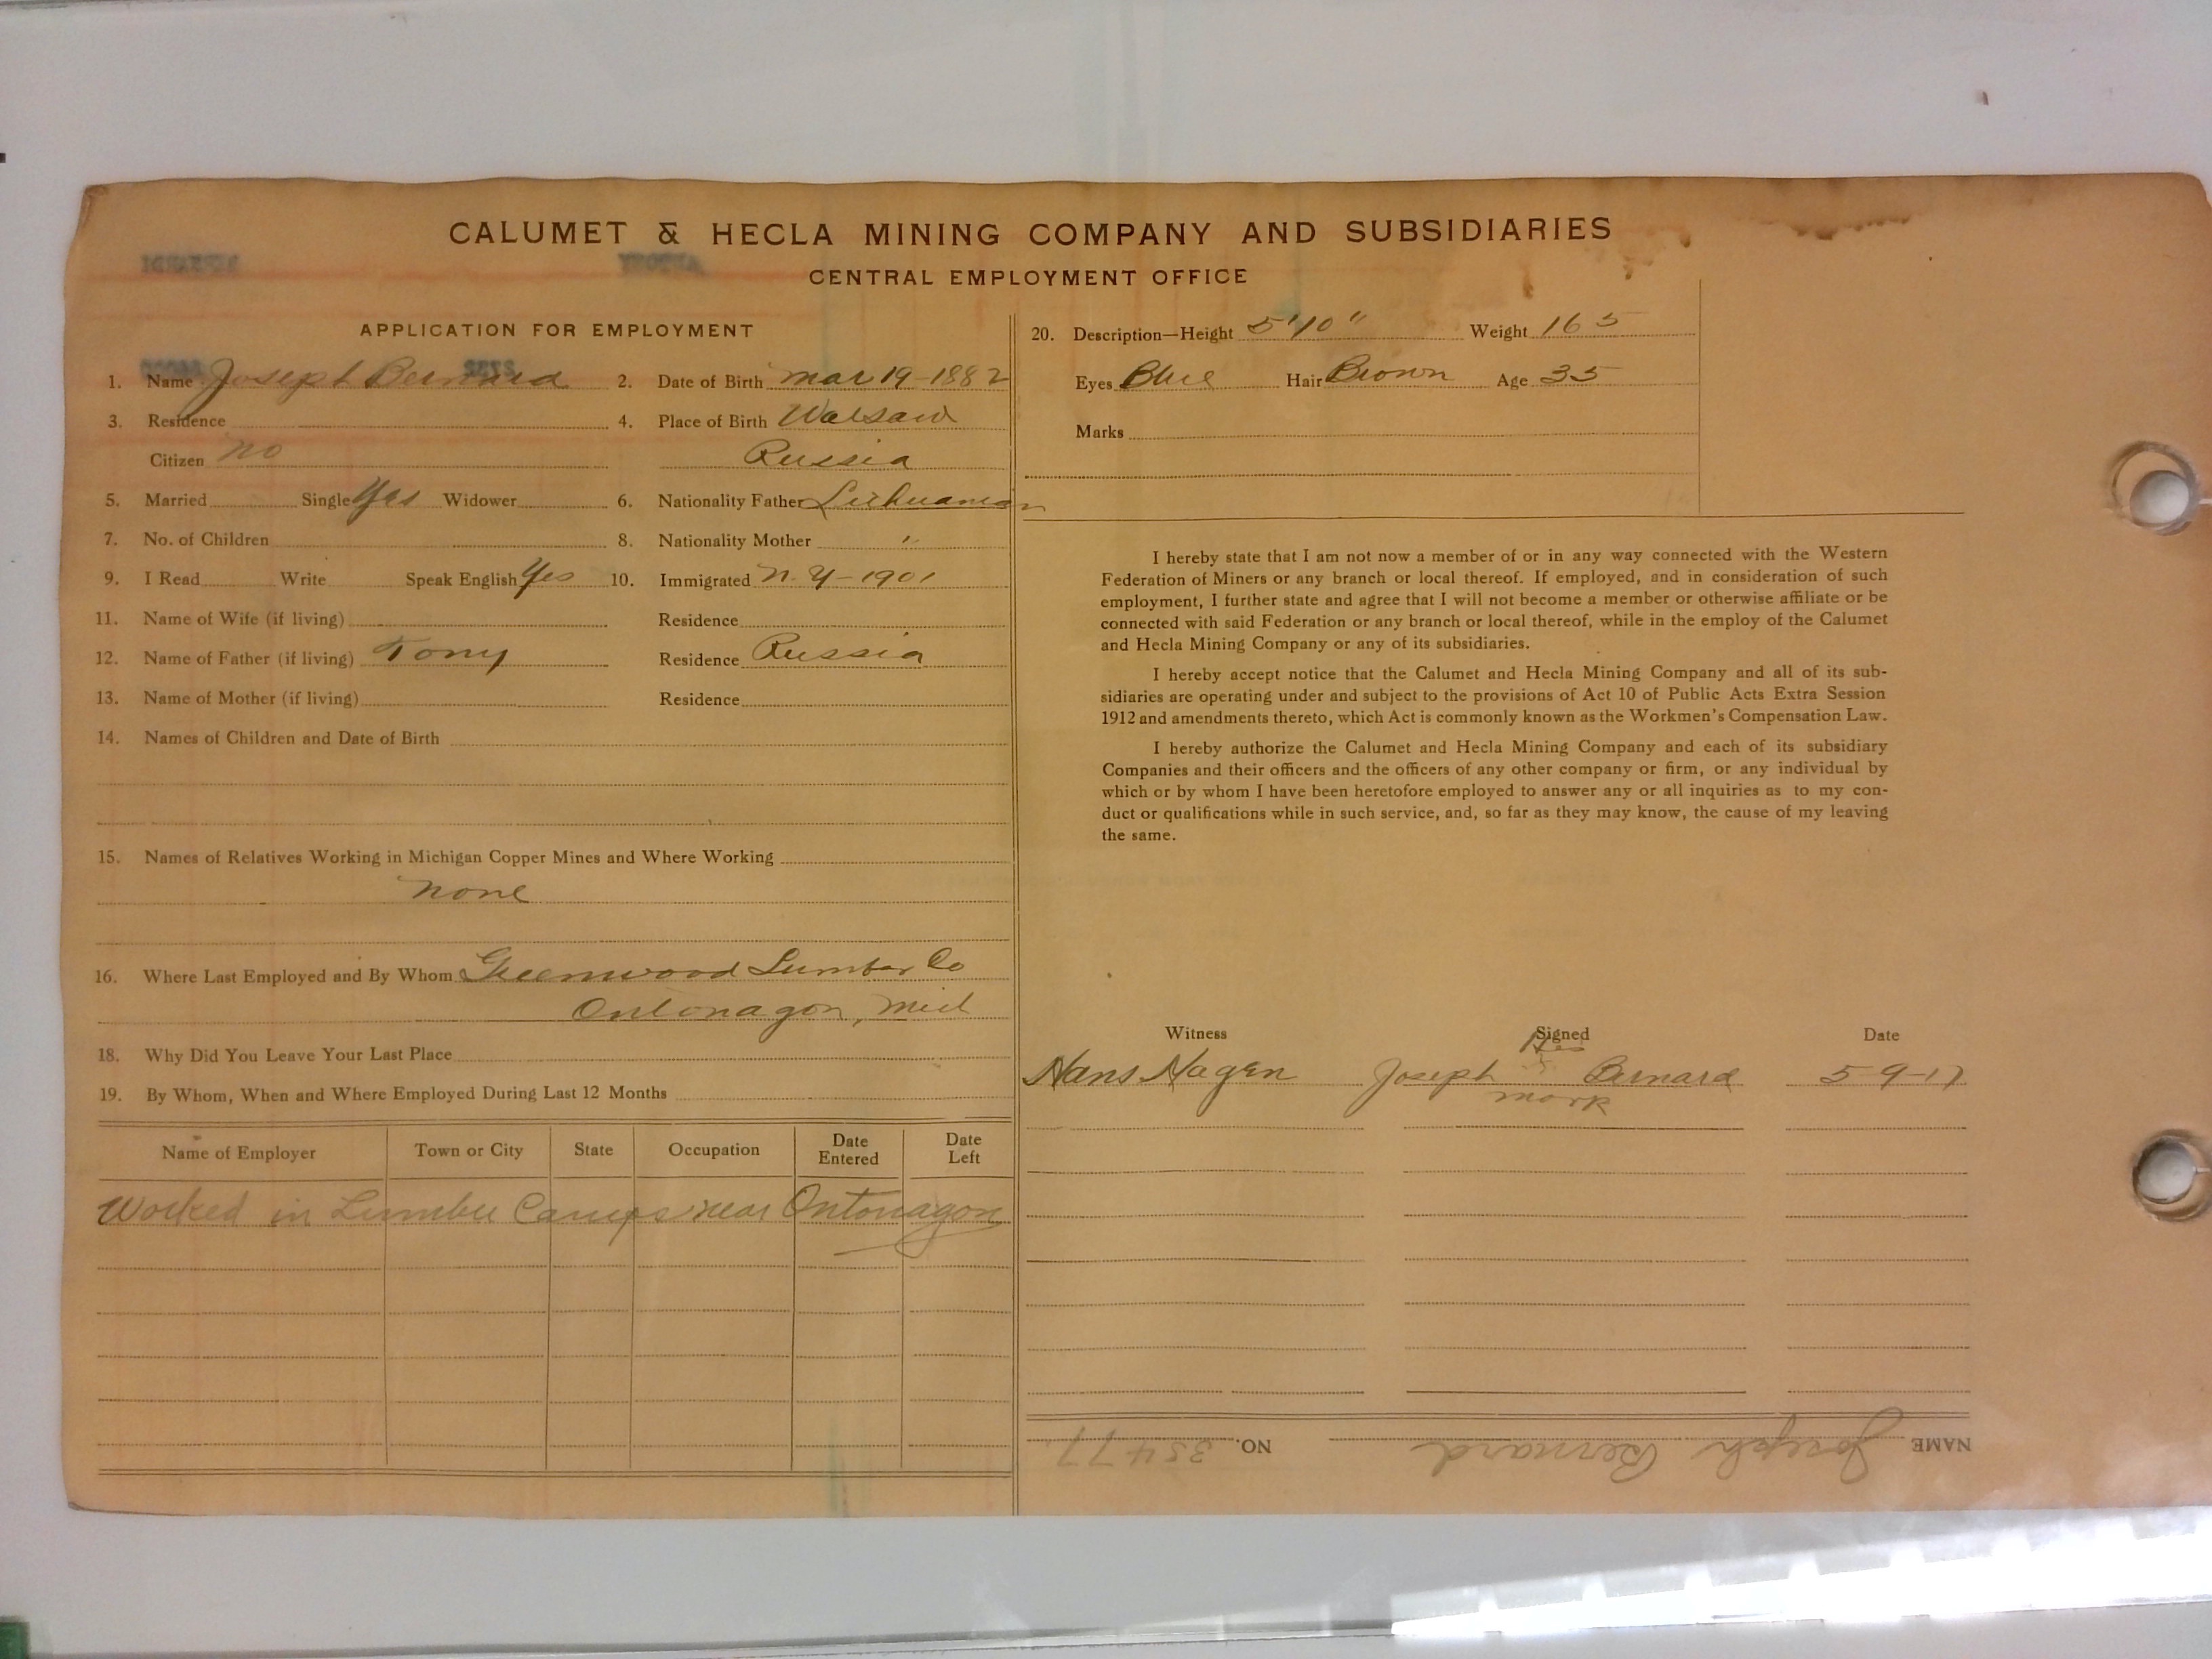 CALUMET & HECLA MINING COMPANY AND SUBSIDIARIES
CENTRAL EMPLOYMENT OFFICE
APPLICATION FOR EMPLOYMENT
1. Name Joseph Bernard 2. Date of Birth Mar 19-1882
3. Residence 4. Place of Birth Walsaw
Citizen no Russia
5. Married Single Yes Widower 6. Nationality Father Liehuanian
7. No. of Children 8. Nationality Mother "
9. I Read Write Speak English Yes 10. Immigrated N.Y-1901
11. Name of Wife (if living) Residence
12. Name of Father (if living) Tony Residence Russia
13. Name of Mother (if living) Residence
14. Names of Children and Date of Birth
15. Names of Relatives Working in Michigan Copper Mines and Where Working
none
16. Where Last Employed and By Whom Greenwood Lumber Co
Ontonagon, Mich
18. Why Did You Leave Your Last Place
19. By Whom, When and Where Employed During Last 12 Months
Name of Employer Town or City State Occupation Date Entered Date Left
Worked in Lumber Camps near Ontonagon
20. Description—Height 5'10" Weight 165
Eyes Blue Hair Brown Age 35
Marks
I hereby state that I am not now a member of or in any way connected with the Western
Federation of Miners or any branch or local thereof. If employed, and in consideration of such
employment, I further state and agree that I will not become a member or otherwise affiliate or be
connected with said Federation or any branch or local thereof, while in the employ of the Calumet
and Hecla Mining Company or any of its subsidiaries.
I hereby accept notice that the Calumet and Hecla Mining Company and all of its sub-
sidiaries are operating under and subject to the provisions of Act 10 of Public Acts Extra Session
1912 and amendments thereto, which Act is commonly known as the Workmen's Compensation Law.
I hereby authorize the Calumet and Hecla Mining Company and each of its subsidiary
Companies and their officers and the officers of any other company or firm, or any individual by
which or by whom I have been heretofore employed to answer any or all inquiries as to my con-
duct or qualifications while in such service, and, so far as they may know, the cause of my leaving
the same.
Witness Signed Date
His
Hans Hagen Joseph x Bernard 5-9-17
mark
NAME Joseph Bernard NO. 35477